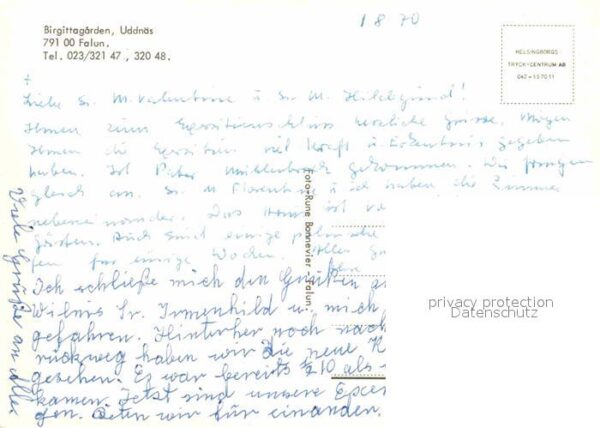 1 8 70
Birgittagården, Uddnäs
791 00 Falun.
Tel. 023/321 47, 320 48.
HELSINGBORGS
TRYCK-CENTRUM AB
042-15 70 11
Liebe Sr. M. Valentine u. Sr. M. Hildegund!
Ihnen zum Exerzitienschluss herzliche Grüsse. Mögen
Ihnen die Exerzitien viel Kraft u. Erkenntnis gegeben
haben. Ist Pater gekommen. Wir fangen
gleich an. Sr. M. Florentine u. ich haben die Zimmer
nebeneinander. Das Haus ist
Auch sind einige
für einige Wochen.
Foto-Rune Bonnevier, Falun
Ich schließe mich den Grüßen an
Sr. Irmenhild u. mich
gefahren. Hinterher noch nach
rückweg haben wir die neue K
gesehen. Es war bereits ½10 als
kamen. Jetzt sind unsere Exer
gen. Beten wir für einander.
Viele Grüße an Alle
privacy protection
Datenschutz